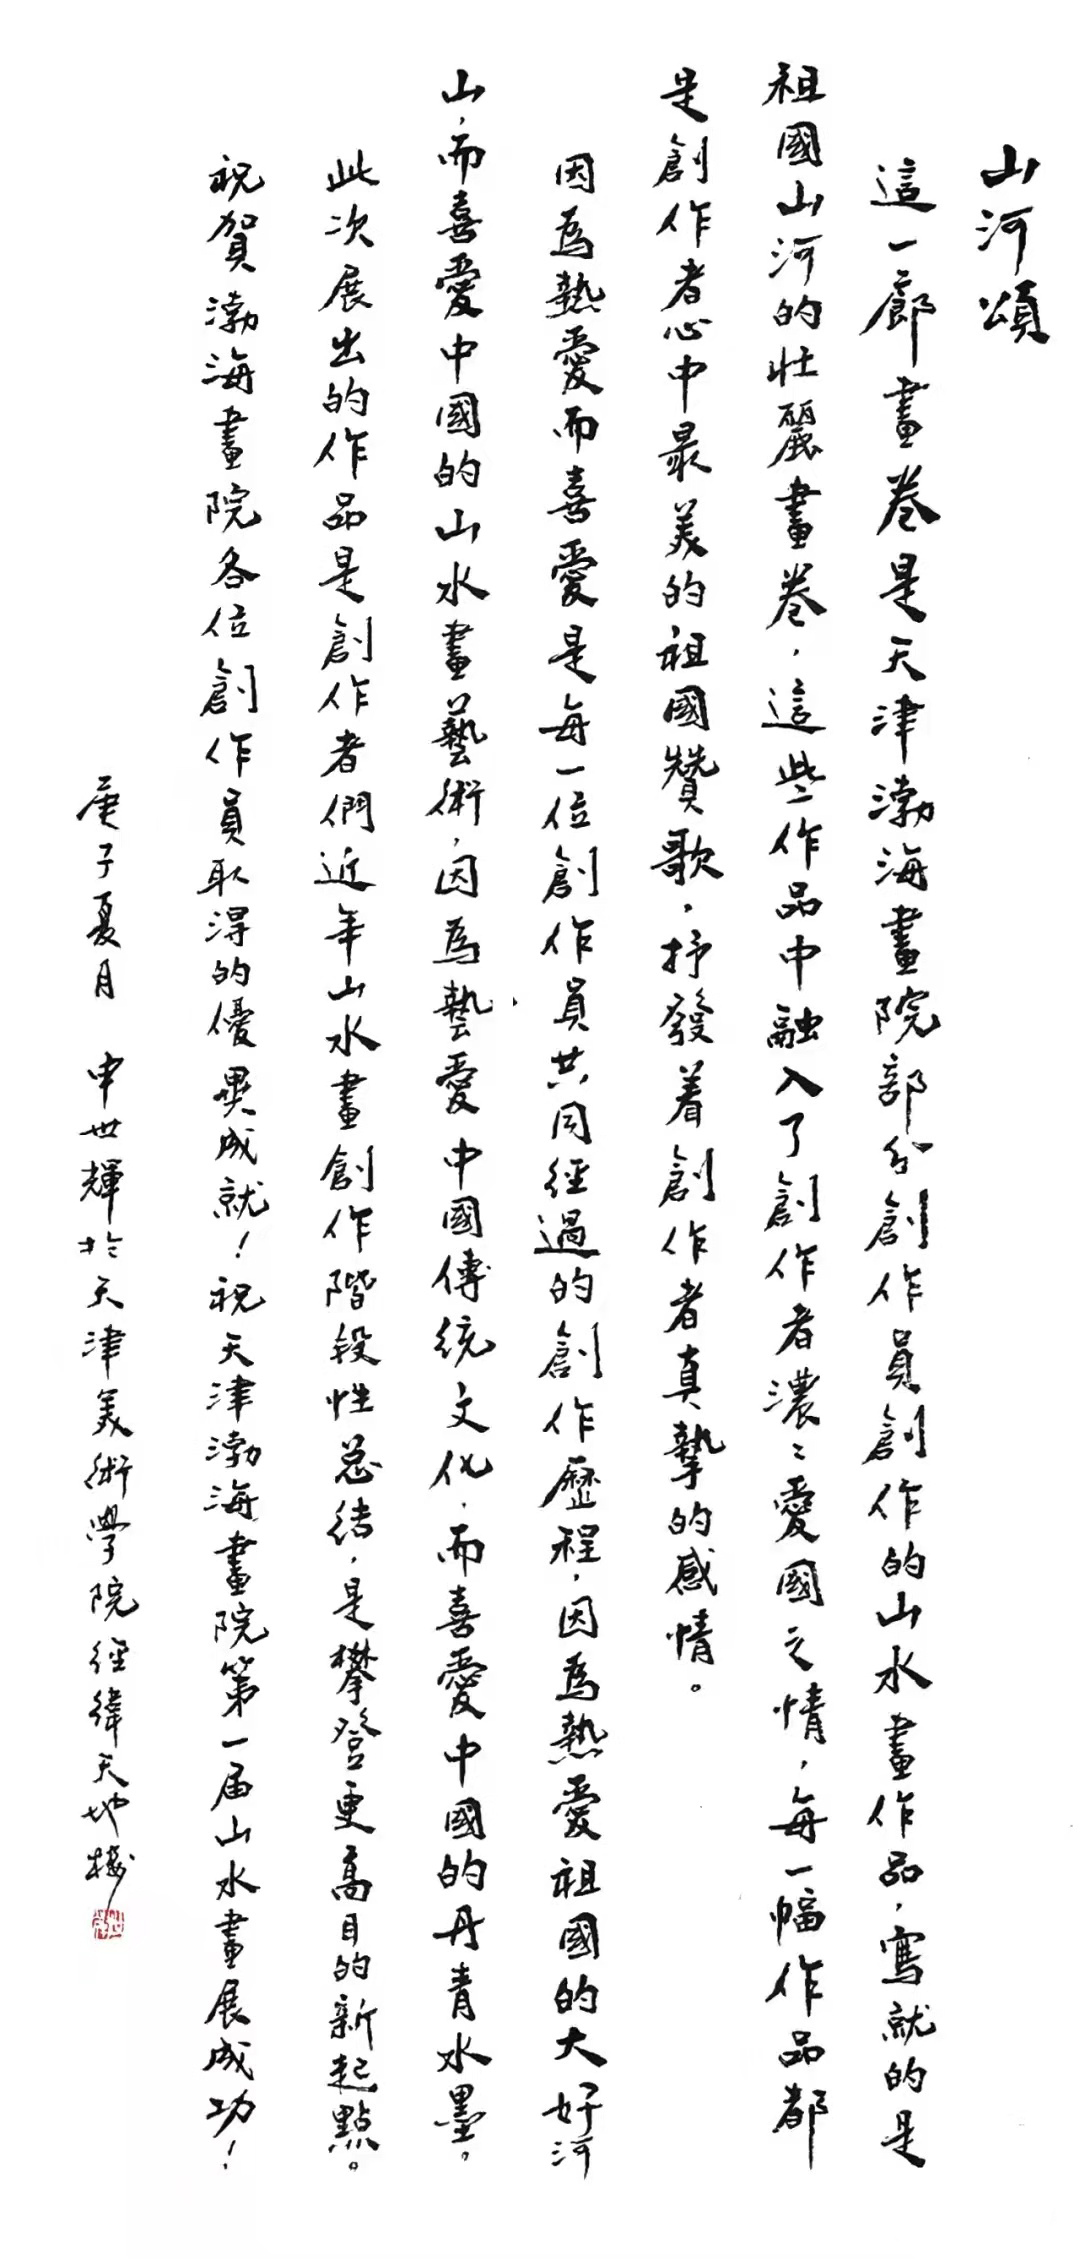 山河頌
這一廊畫卷是天津渤海畫院部分創作員創作的山水畫作品，寫就的是
祖國山河的壯麗畫卷，這些作品中融入了創作者濃々愛國之情，每一幅作品都
是創作者心中最美的祖國贊歌，抒發着創作者真摯的感情。
因為熱愛而喜愛是每一位創作員共同經過的創作歷程，因為熱愛祖國的大好河
山，而喜愛中國的山水畫藝術，因為熱愛中國傳統文化，而喜愛中國的丹青水墨。
此次展出的作品是創作者們近年山水畫創作階段性总结，是攀登更高目的新起點。
祝賀渤海畫院各位創作員取得的優異成就！祝天津渤海畫院第一届山水畫展成功！
庚子夏月 申世輝於天津美術學院經緯天地樓